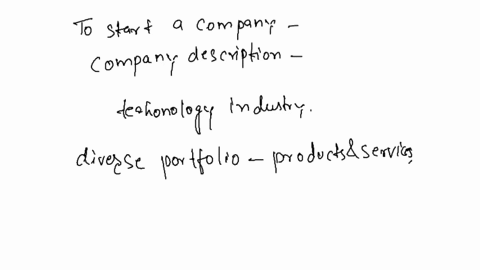 To start a company -
Company description -
teshonology industry.
diverse portfolio - products & services